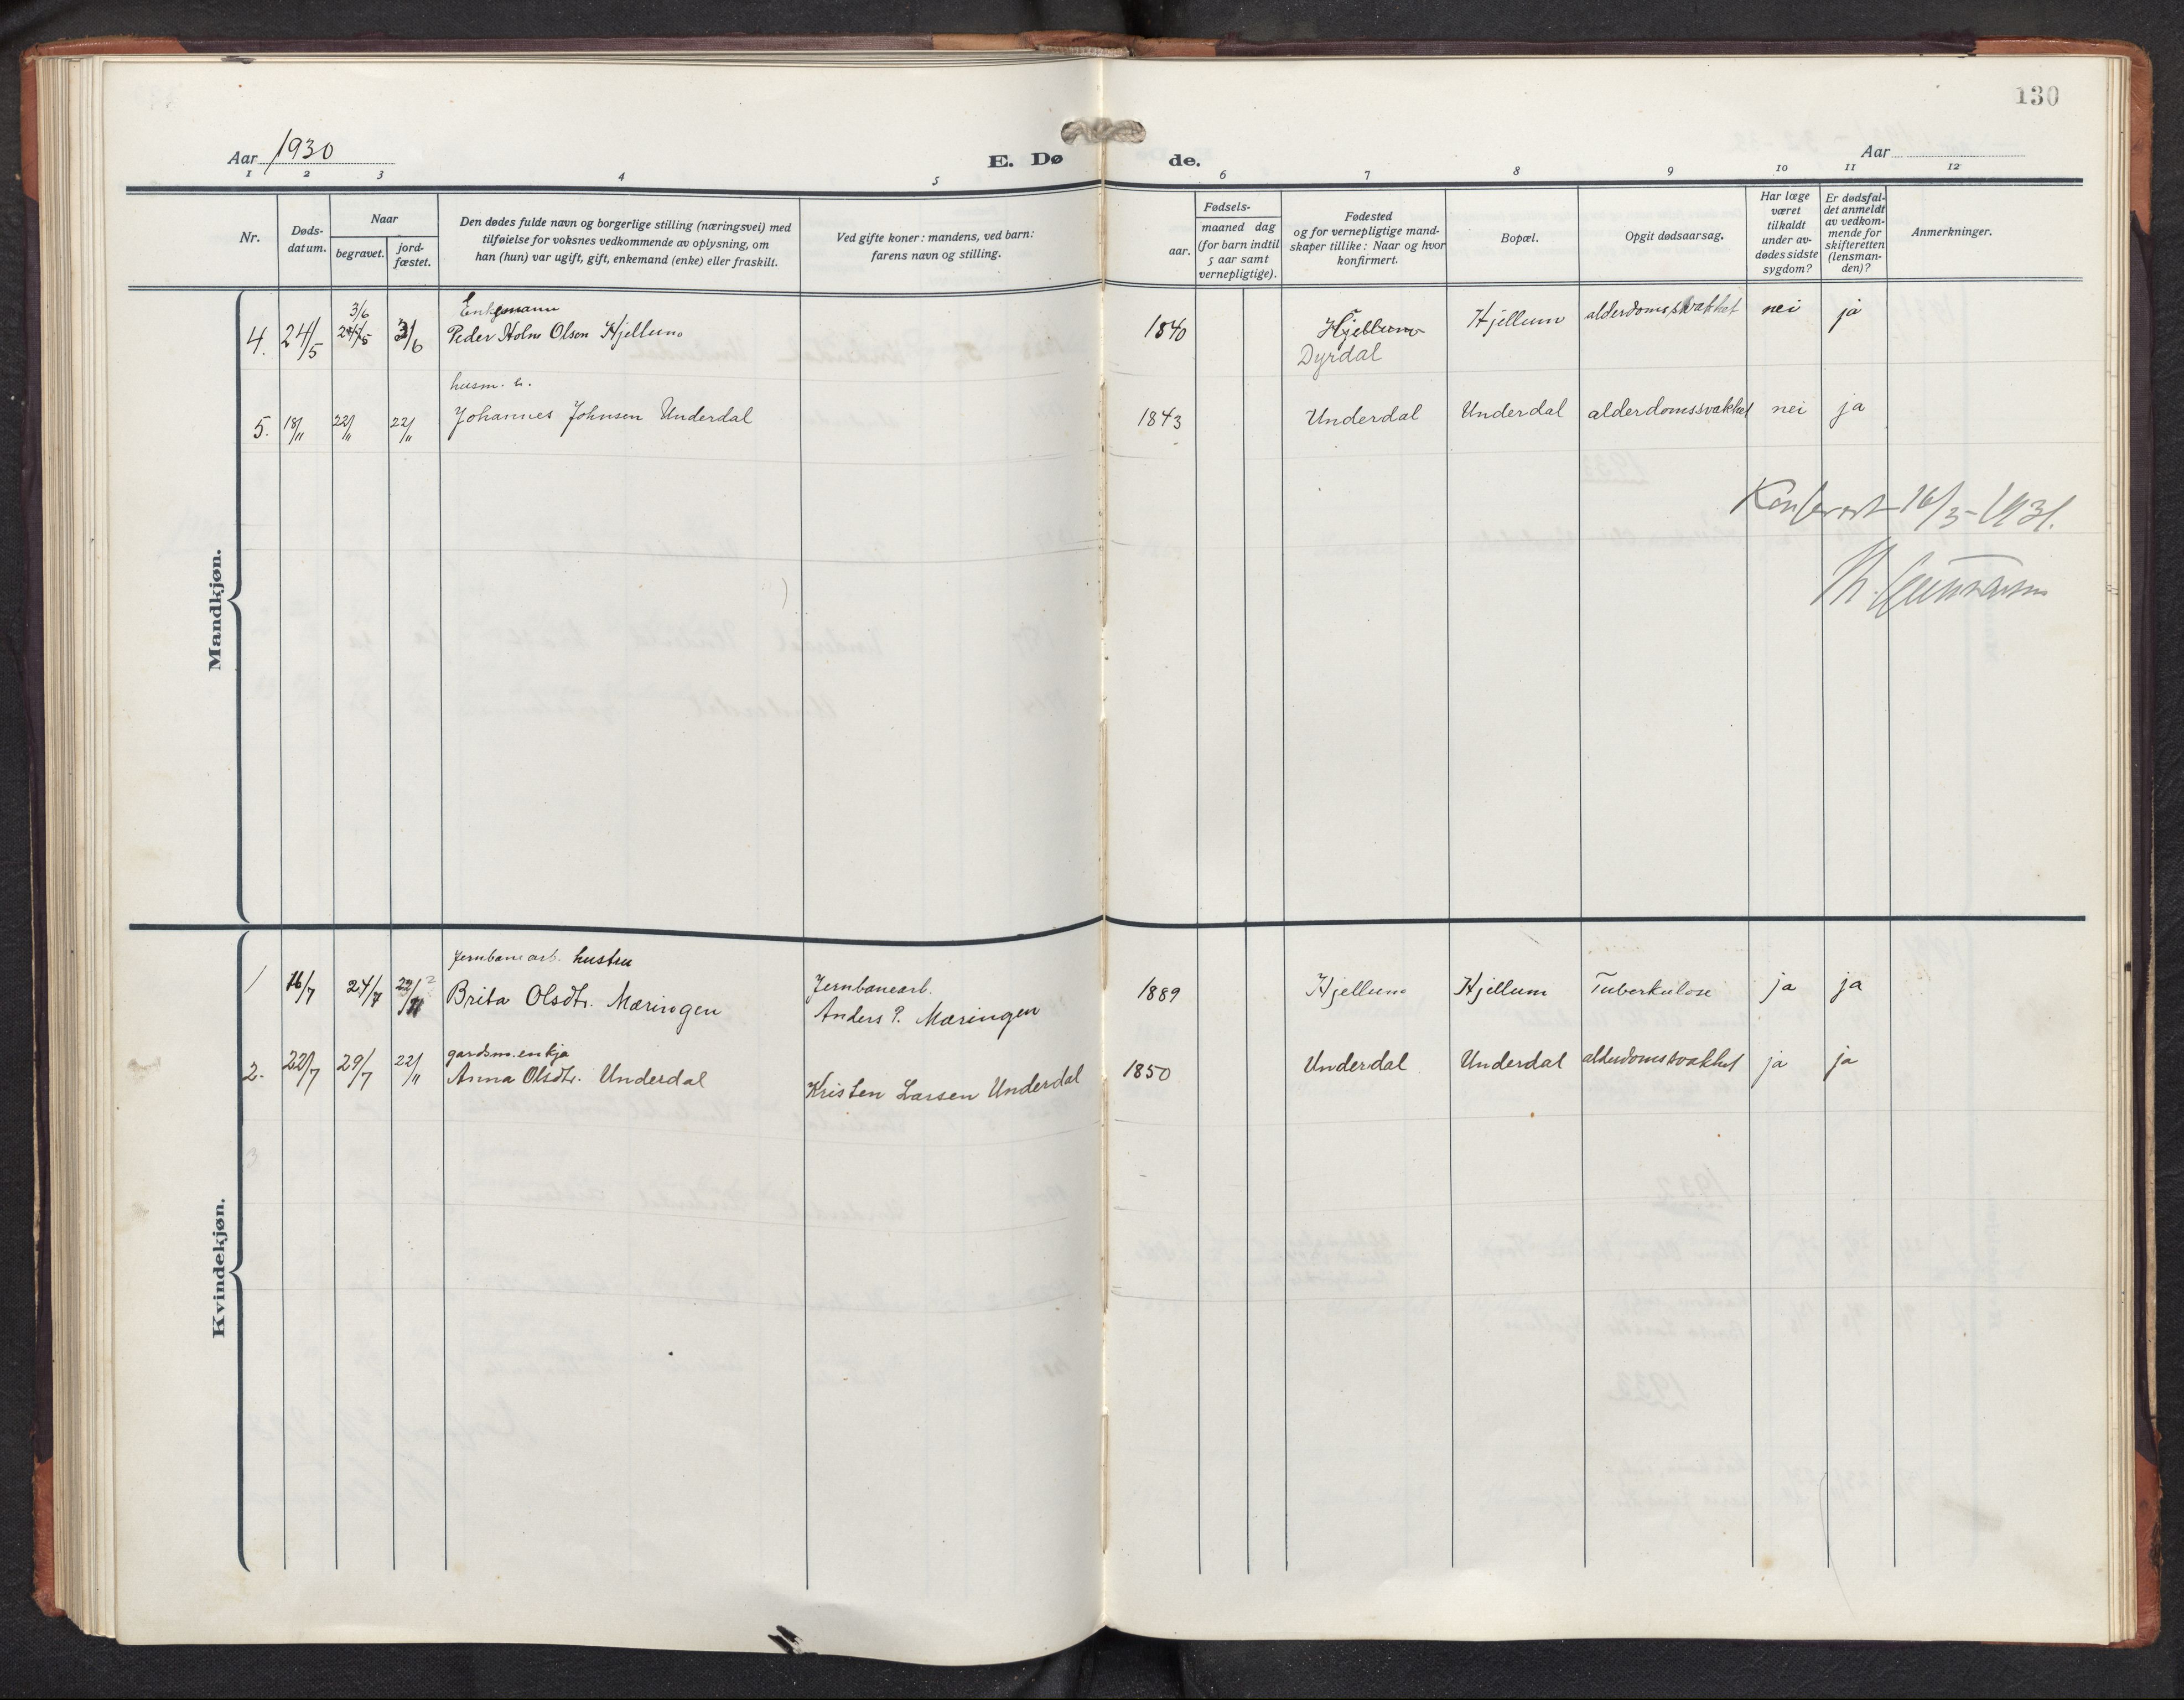 130
Aar 1930
E. Dø
de.
Aar
1 2 3 4 5 6 7 8 9 10 11 12
Nr.
Døds-
datum.
Naar
begravet.
jord-
fæstet.
Den dødes fulde navn og borgerlige stilling (næringsvei) med
tilføielse for voksnes vedkommende av oplysning, om
han (hun) var ugift, gift, enkemand (enke) eller fraskilt.
Ved gifte koner: mandens, ved barn:
farens navn og stilling.
Fødsels-
aar.
maaned dag
(for barn indtil
5 aar samt
vernepligtige).
Fødested
og for vernepligtige mand-
skaper tillike: Naar og hvor
konfirmert.
Bopæl.
Opgit dødsaarsag.
Har læge
været
tilkaldt
under av-
dødes sidste
sygdom?
Er dødsfal-
det anmeldt
av vedkom-
mende for
skifteretten
(lensman-
den)?
Anmerkninger.
Mandkjøn.
3/6 Enkemann
4. 24/5 3/6 Peder Holm Olsen Hjellum 1840 Hjellum Hjellum alderdomssvakhet nei ja
Dyrdal
husm. e.
5. 18/11 22/11 22/11 Johannes Johnsen Underdal 1843 Underdal Underdal alderdomssvakhet nei ja
Konferert 16/3-1931.
Kvindekjøn.
Jernbanearb. hustru
1 16/7 24/7 22/11 Brita Olsdtr. Mæringen Jernbanearb. 1889 Hjellum Hjellum Tuberkulose ja ja
Anders P. Mæringen
gardsm.enkja
2. 22/7 29/7 22/11 Anna Olsdtr. Underdal Kristen Larsen Underdal 1850 Underdal Underdal alderdomssvakhet ja ja
3